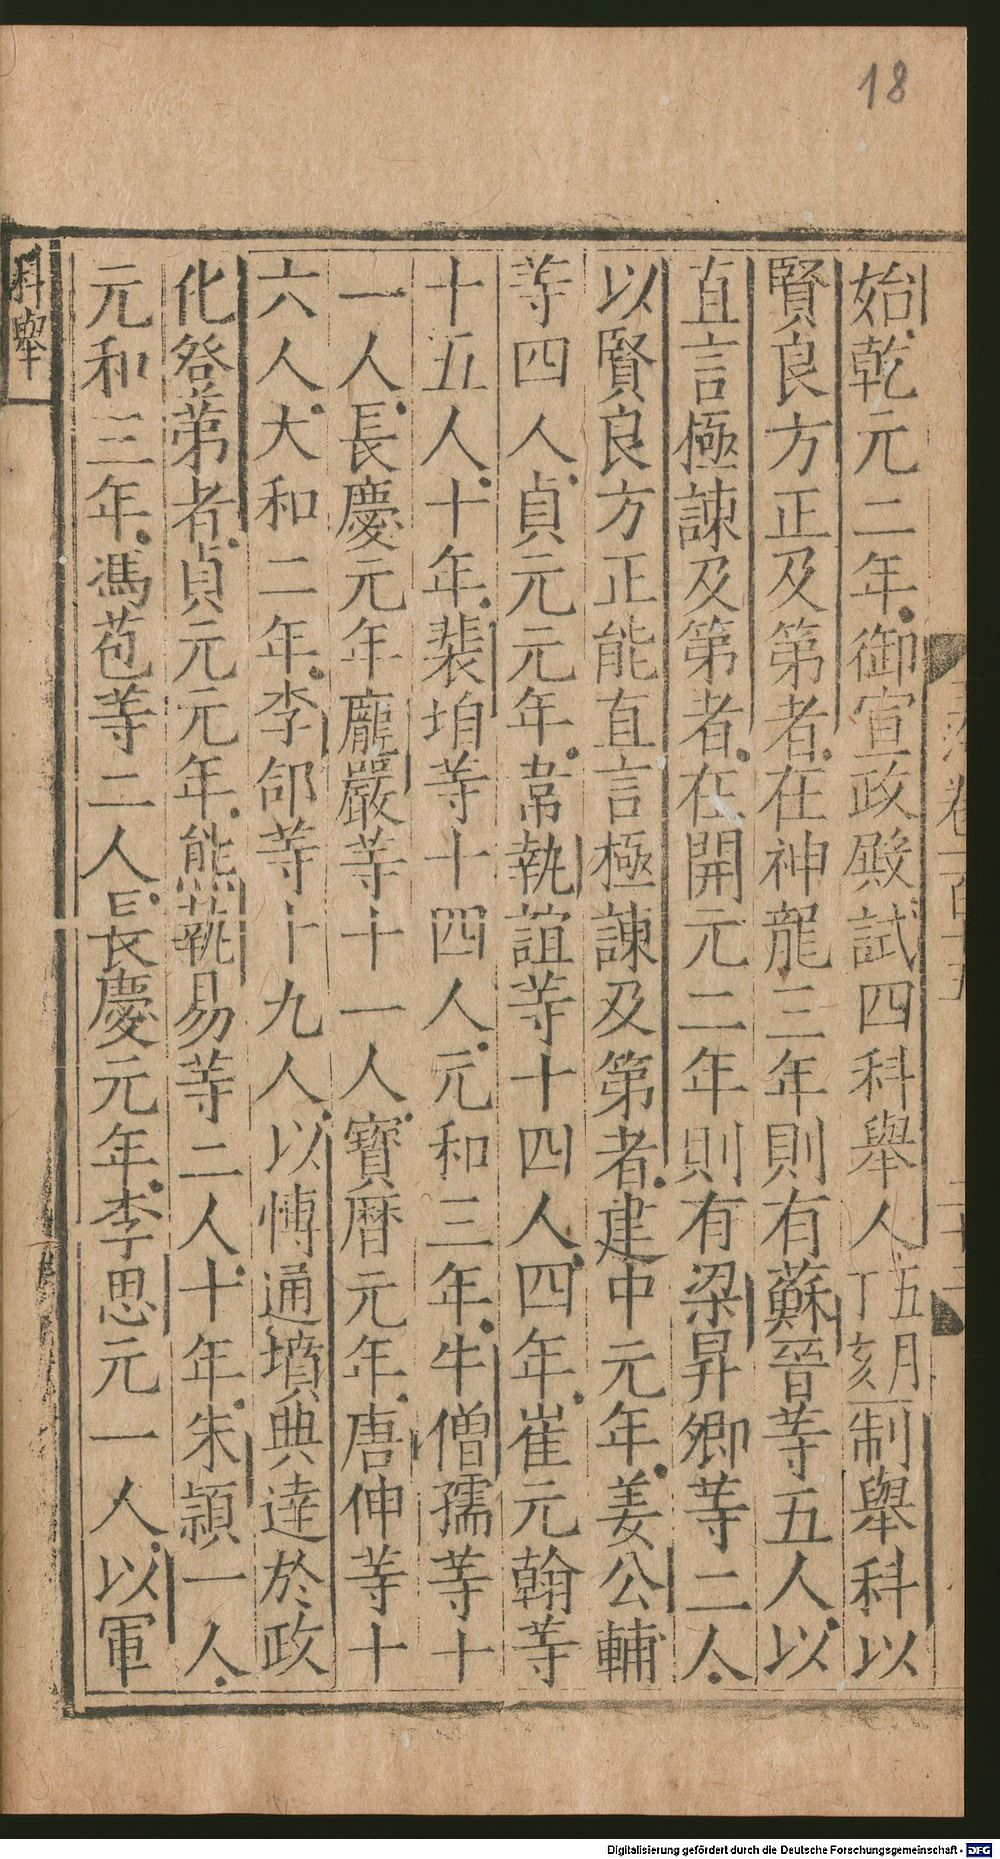 18
始乾元二年御宣政殿試四科舉人五月丁亥制舉科以
賢良方正及第者在神龍三年則有蘇晉等五人以
直言極諫及第者在開元二年則有梁昇卿等二人
以賢良方正能直言極諫及第者建中元年姜公輔
等四人貞元元年韋執誼等十四人四年崔元翰等
十五人十年裴垍等十四人元和三年牛僧孺等十
一人長慶元年龐嚴等十一人寶曆元年唐伸等十
六人大和二年李郃等十九人以博通墳典達於政
化登第者貞元元年熊執易等二人十年朱潁一人
元和三年馮苞等二人長慶元年李思元一人以軍
科舉
Digitalisierung gefördert durch die Deutsche Forschungsgemeinschaft - DFG